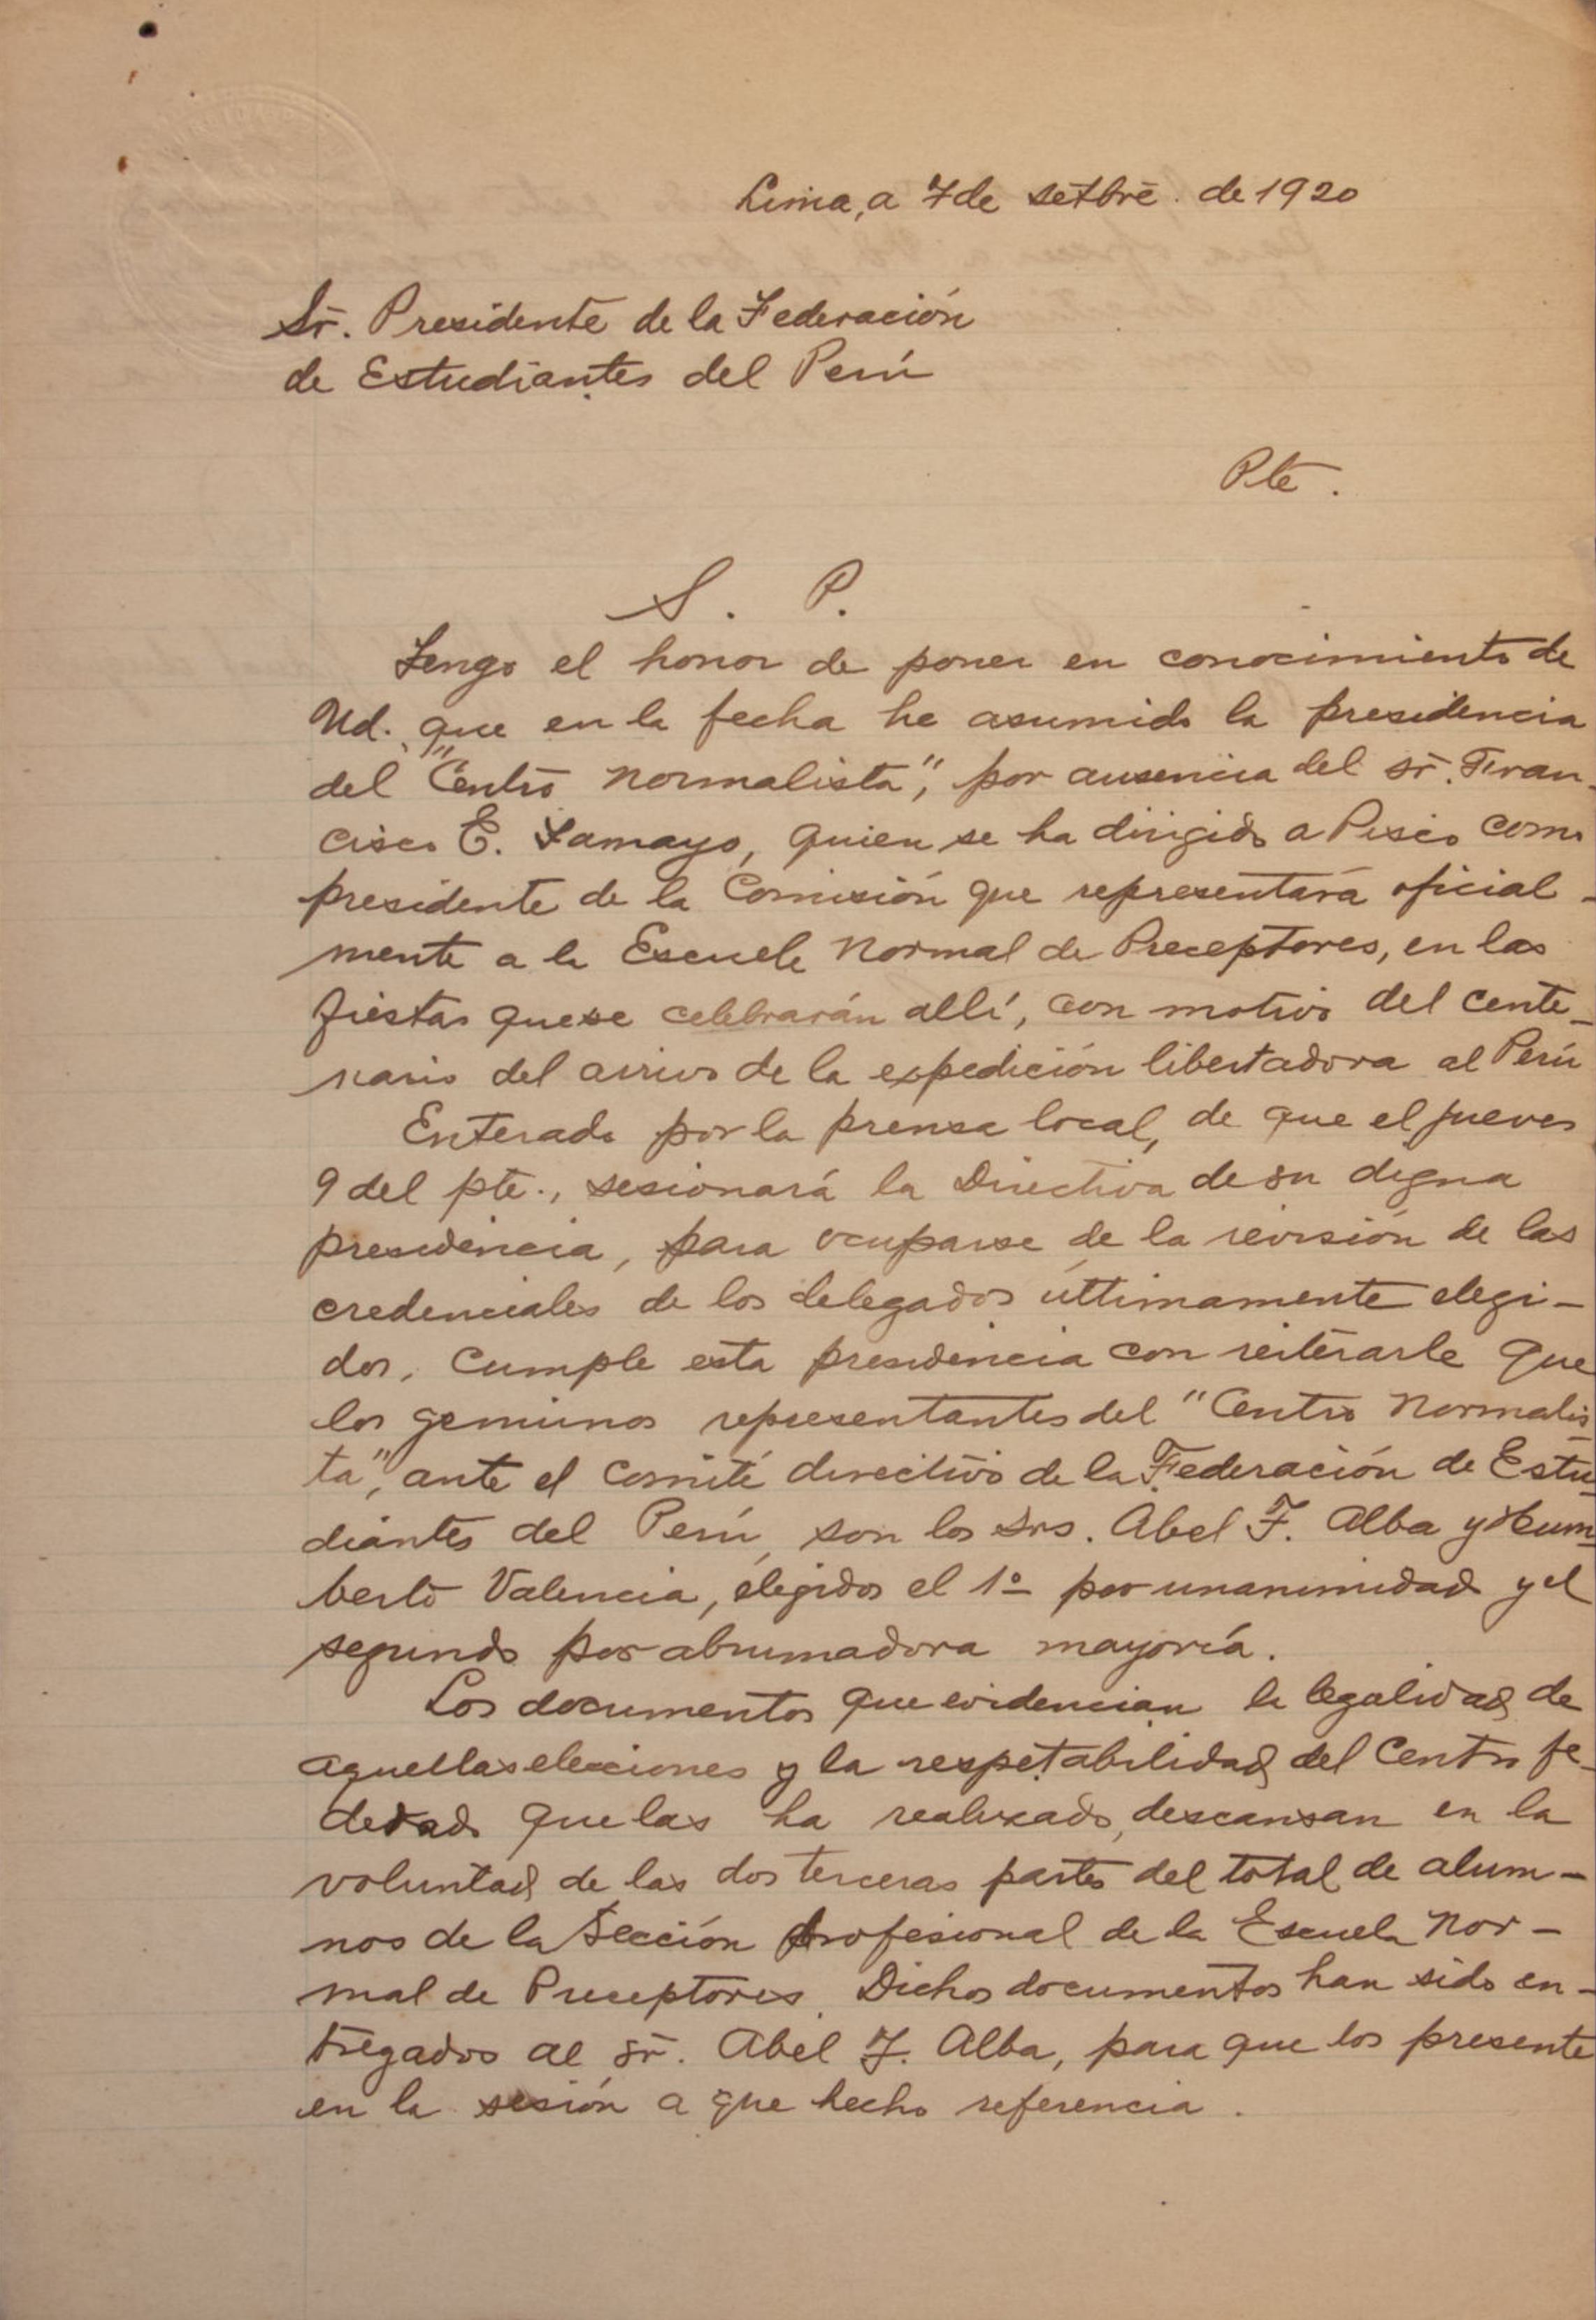 Lima, a 7 de setbre. de 1920
Sr. Presidente de la Federación
de Estudiantes del Perú
Pte.
S. P.
Tengo el honor de poner en conocimiento de
Ud. que en la fecha he asumido la presidencia
del "Centro Normalista", por ausencia del sr. Fran-
cisco E. Tamayo, quien se ha dirigido a Pisco como
presidente de la Comisión que representará oficial-
mente a la Escuela Normal de Preceptores, en las
fiestas que se celebrarán allí, con motivo del cente-
nario del arrivo de la expedición libertadora al Perú
Enterado por la prensa local, de que el jueves
9 del pte., sesionará la Directiva de su digna
presidencia, para ocuparse de la revisión de las
credenciales de los delegados últimamente elegi-
dos, cumple esta presidencia con reiterarle que
los genuinos representantes del "Centro Normalis-
ta", ante el Comité directivo de la Federación de Estu-
diantes del Perú, son los Srs. Abel F. Alba y Hum-
berto Valencia, elegidos el 1º por unanimidad y el
segundo por abrumadora mayoría.
Los documentos que evidencian la legalidad de
aquellas elecciones y la respetabilidad del Centro fe-
derado que las ha realizado, descansan en la
voluntad de las dos terceras partes del total de alum-
nos de la Sección profesional de la Escuela Nor-
mal de Preceptores. Dichos documentos han sido en-
tregados al sr. Abel F. Alba, para que los presente
en la sesión a que hecho referencia.